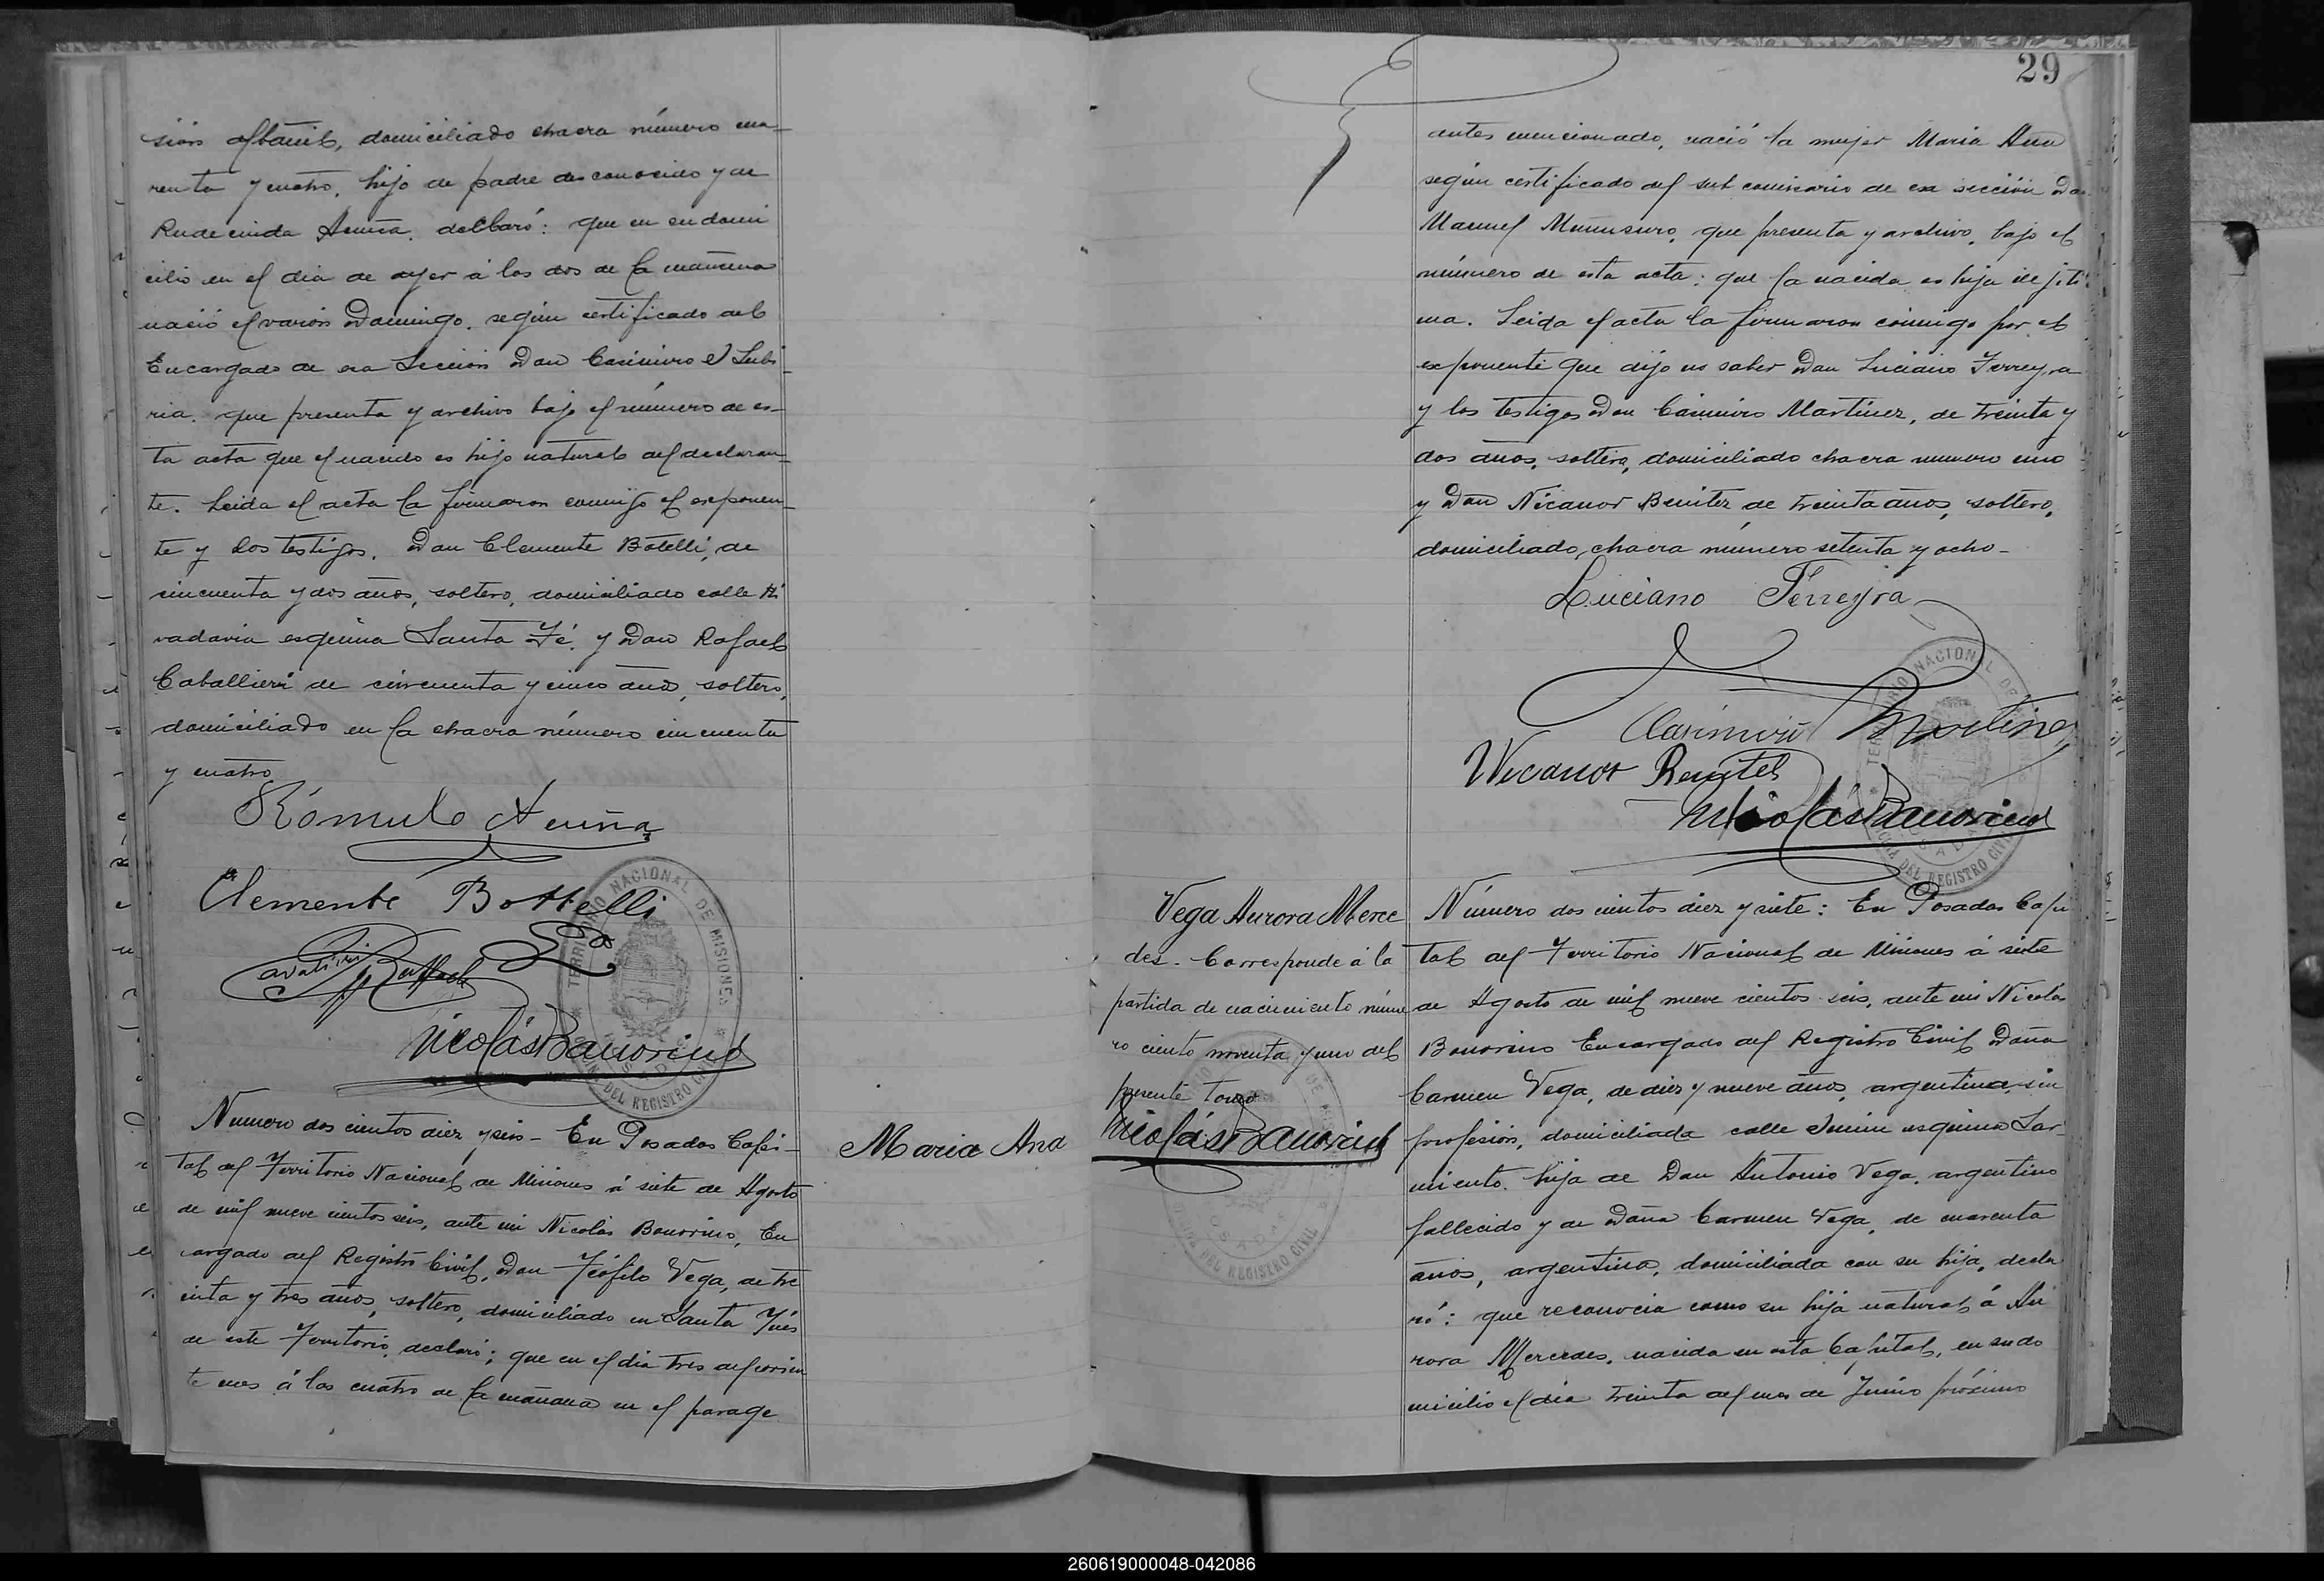 sión albañil, domiciliado chacra número cua-
renta y cuatro, hijo de padre desconocido y de
Rudecinda Acuña, declaró: que en su domi
cilio en el dia de ayer á las dos de la mañana
nació el varón Domingo, según certificado del
Encargado de esa Sección Don Casimiro J Subi
ria, que presenta y archivo bajo el número de es-
ta acta que el nacido es hijo natural del declaran-
te. Leida el acta la firmaron conmigo el exponen-
te y los testigos, Don Clemente Botelli, de
cincuenta y dos años, soltero, domiciliado calle Ri
vadavia esquina Santa Fé, y Don Rafael
Caballieri de cincuenta y cinco años, soltero,
domiciliado en la chacra número cincuenta
y cuatro
Rómulo Acuña
Clemente Bottelli
Nicolás Bonorino
TERRITORIO NACIONAL DE MISIONES
OFICINA DEL REGISTRO CIVIL
POSADAS
Numero dos cientos diez y seis - En Posadas Capi-
tal del Territorio Nacional de Misiones á siete de Agosto
de mil nueve cientos seis, ante mi Nicolás Bonorino, En
cargado del Registro Civil, Don Teófilo Vega, de tre
inta y tres años, soltero, domiciliado en Santa Inés
de este Territorio, declaró; que en el dia tres del corrien
te mes á las cuatro de la mañana en el parage
Maria Ana
29
antes mencionado, nació la mujer Maria Ana
según certificado del sub comisario de esa sección Don
Manuel que presenta y archivo, bajo el
número de esta acta; que la nacida es hija ilejiti
ma. Leida el acta la firmaron conmigo por el
exponente que dijo no saber Don Luciano Ferreyra
y los testigos Don Casimiro Martinez, de treinta y
dos años, soltero, domiciliado chacra numero uno
y Don Nicanor Benitez de treinta años, soltero,
domiciliado, chacra número setenta y ocho-
Luciano Ferreyra
Casimiro Martinez
Nicanor Benitez
Nicolás Bonorino
TERRITORIO NACIONAL DE MISIONES
OFICINA DEL REGISTRO CIVIL
POSADAS
Vega Aurora Merce
des - Corresponde á la
partida de nacimiento núme
ro ciento noventa y uno del
presente tomo
Nicolás Bonorino
Número dos cientos diez y siete: En Posadas Capi
tal del Territorio Nacional de Misiones á siete
de Agosto de mil nueve cientos seis, ante mi Nicolás
Bonorino Encargado del Registro Civil Doña
Carmen Vega, de diez y nueve años, argentina, sin
profesión, domiciliada calle Junin esquina Sar-
miento, hija de Don Antonio Vega, argentino
fallecido y de Doña Carmen Vega, de cuarenta
años, argentina, domiciliada con su hija, decla
ró: que reconocia como su hija natural á Au
rora Mercedes, nacida en esta Capital, en su do
micilio el dia treinta del mes de Junio próximo
260619000048-042086